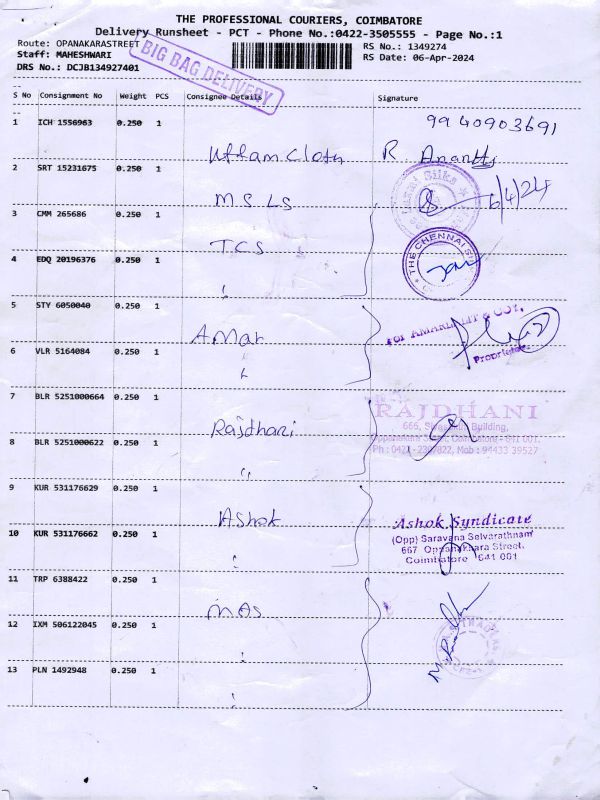 THE PROFESSIONAL COURIERS, COIMBATORE
Delivery Runsheet - PCT - Phone No.:0422-3505555 - Page No.:1
Route: OPANAKARASTREET
RS No.: 1349274
Staff: MAHESHWARI
RS Date: 06-Apr-2024
DRS No.: DCJB134927401
BIG BAG DELIVERY
S No Consignment No Weight PCS Consignee Details Signature
1 ICH 1556963 0.250 1 Uttam Cloth 9940903691
R Ananth
2 SRT 15231675 0.250 1 M S LS 6/4/24
3 CMM 265686 0.250 1 TCS
THE CHENNAI SILKS
4 EDQ 20196376 0.250 1 "
5 STY 6050040 0.250 1 Amar
For AMARJOTHI & CO.,
Proprietor.
6 VLR 5164084 0.250 1 "
7 BLR 5251000664 0.250 1 Rajdhani
RAJDHANI
8 BLR 5251000622 0.250 1 "
Ph : 0421 - 2397822, Mob : 94433 39527
9 KUR 531176629 0.250 1 Ashok
Ashok Syndicate
(Opp) Saravana Selvarathnam
10 KUR 531176662 0.250 1 "
667 Oppanakkara Street,
Coimbatore 641 001
11 TRP 6388422 0.250 1 MAS
12 IXM 506122045 0.250 1 "
13 PLN 1492948 0.250 1 "